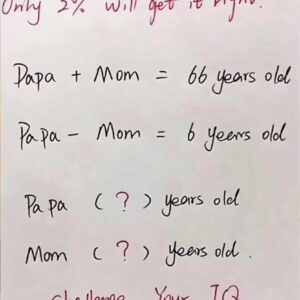 Only 2% will get it right.
Papa + Mom = 66 years old
Papa - Mom = 6 yeers old
Papa ( ? ) years old
Mom ( ? ) years old .
challenge Your IQ